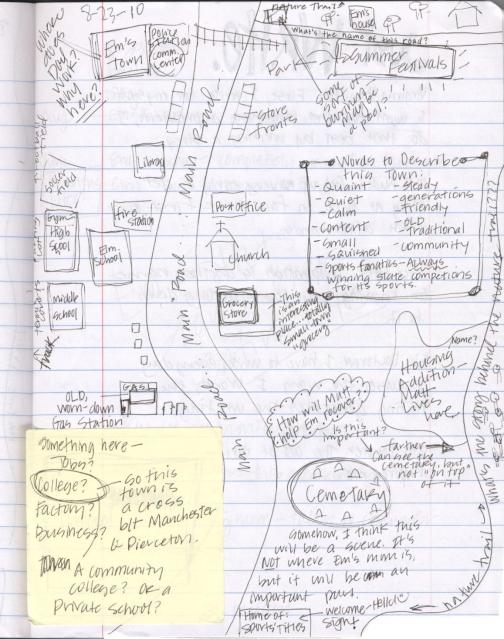 8-23-10
Where does
Dad
work?
Why
here?
Em's
Town
Police
Station
Comm.
Center
nature Trails
Em's
house
What's the name of this road?
Park
Summer
Festivals
some
sort of
maybe
be a
pool?
store
fronts
Main Road
football field
soccer
field
Library
Gym
High
School
Fire
Station
Elm.
School
Post office
Church
Main Road
Words to Describe
this Town:
- Quaint
- Quiet
- Calm
- Content
- Small
- Squished
- Steady
- generations
- friendly
- OLD
- Traditional
- community
- Sports fanatics - Always
winning state competions
for its sports.
tennis courts
Middle
School
track
Grocery
store
This
is an
interesting
place... totally
small-town
grocery
Main Road
What's the
behind the
Name?
Housing
Addition -
Matt
Lives
here
OLD,
worn-down
Gas Station
GAS
How will Matt
help Em recover?
Is this
important?
farther
Can see the
cemetary, but
not "on top"
of it
Main Road
Cemetary
something here -
Jobs?
College?
Factory?
Business?
- so this
town is
a cross
b/t Manchester
& Pierceton.
A community
college? Or a
Private School?
somehow, I think this
will be a scene. It's
NOT where Em's mom is,
but it will be an
important part.
Home of:
Sports Titles
- welcome-Hello!
sign!
nature trail